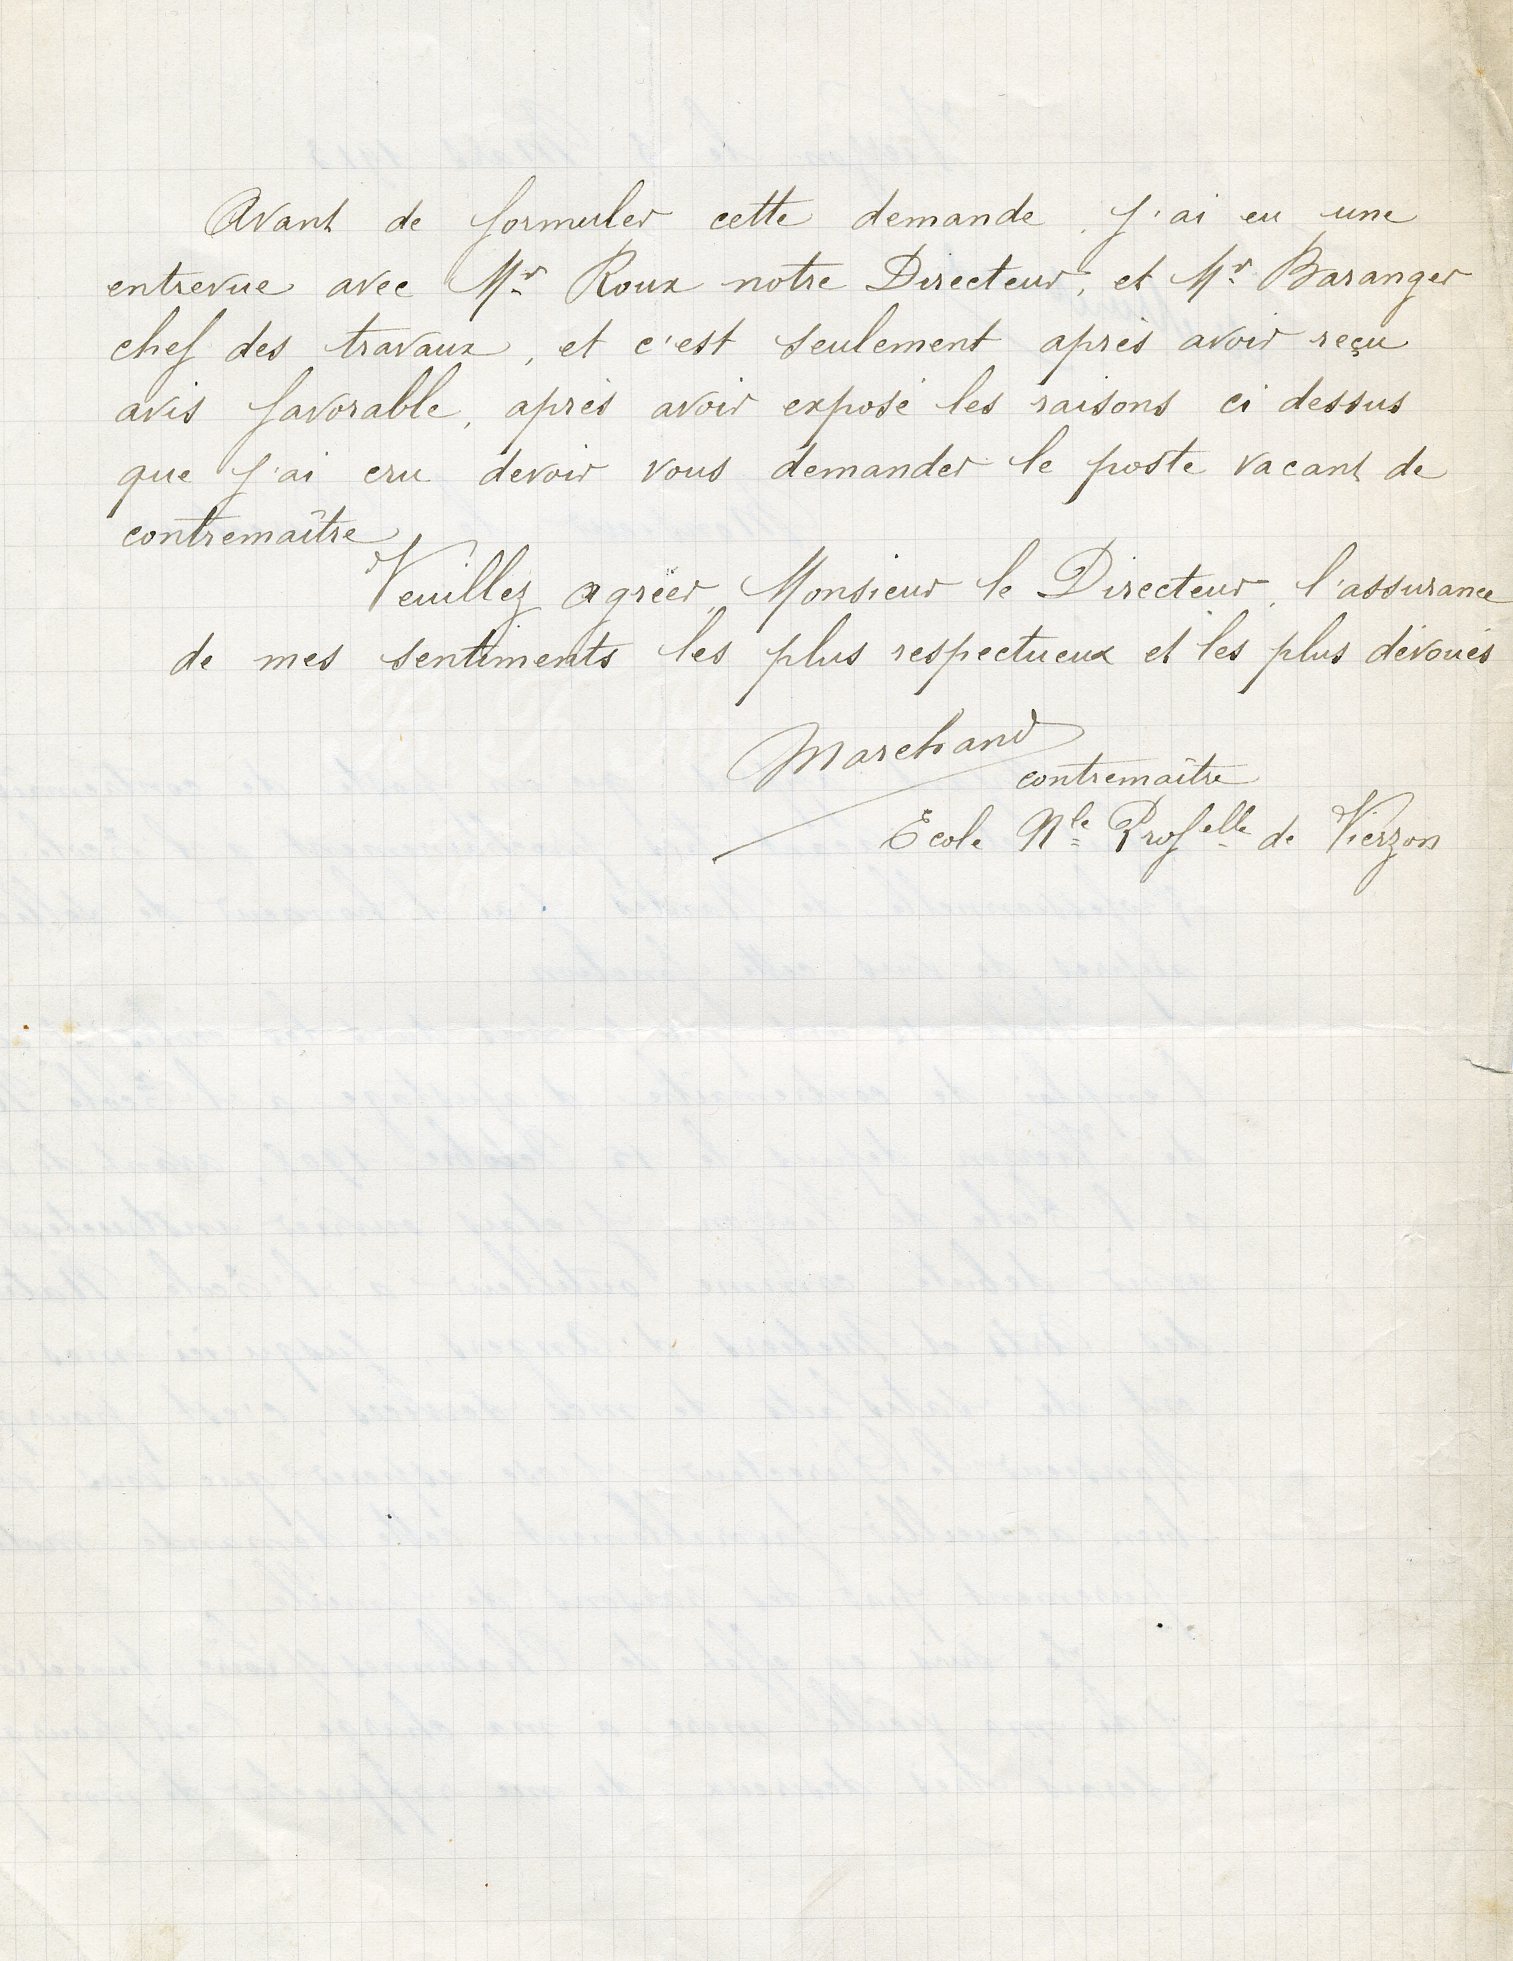 Avant de formuler cette demande, j'ai eu une
entrevue avec Mr Roux notre Directeur, et Mr Baranger
chef des travaux, et c'est seulement après avoir reçu
avis favorable, après avoir exposé les raisons ci dessus
que j'ai cru devoir vous demander le poste vacant de
contremaître
Veuillez agréer, Monsieur le Directeur, l'assurance
de mes sentiments les plus respectueux et les plus dévoués
Marchand
contremaître
Ecole Nle Profelle de Vierzon